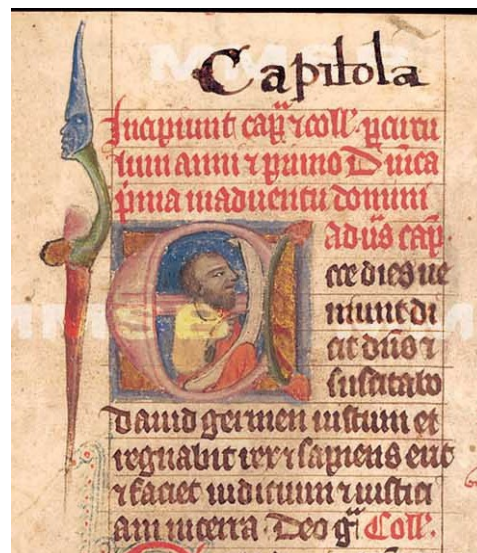 Capitola
Incipiunt cap̄ ⁊ coll. ꝑ circu
lum anni ⁊ primo Dn̄ica
p̄ma in aduentu domini
ad us̄ cap̄.
Ecce dies ue
niunt di
cit dn̄s ⁊
suscitabo
dauid germen iustum et
regnabit rex ⁊ sapiens erit
⁊ faciet iudicium ⁊ iustici
am in terra. Deo gͣ Coll.